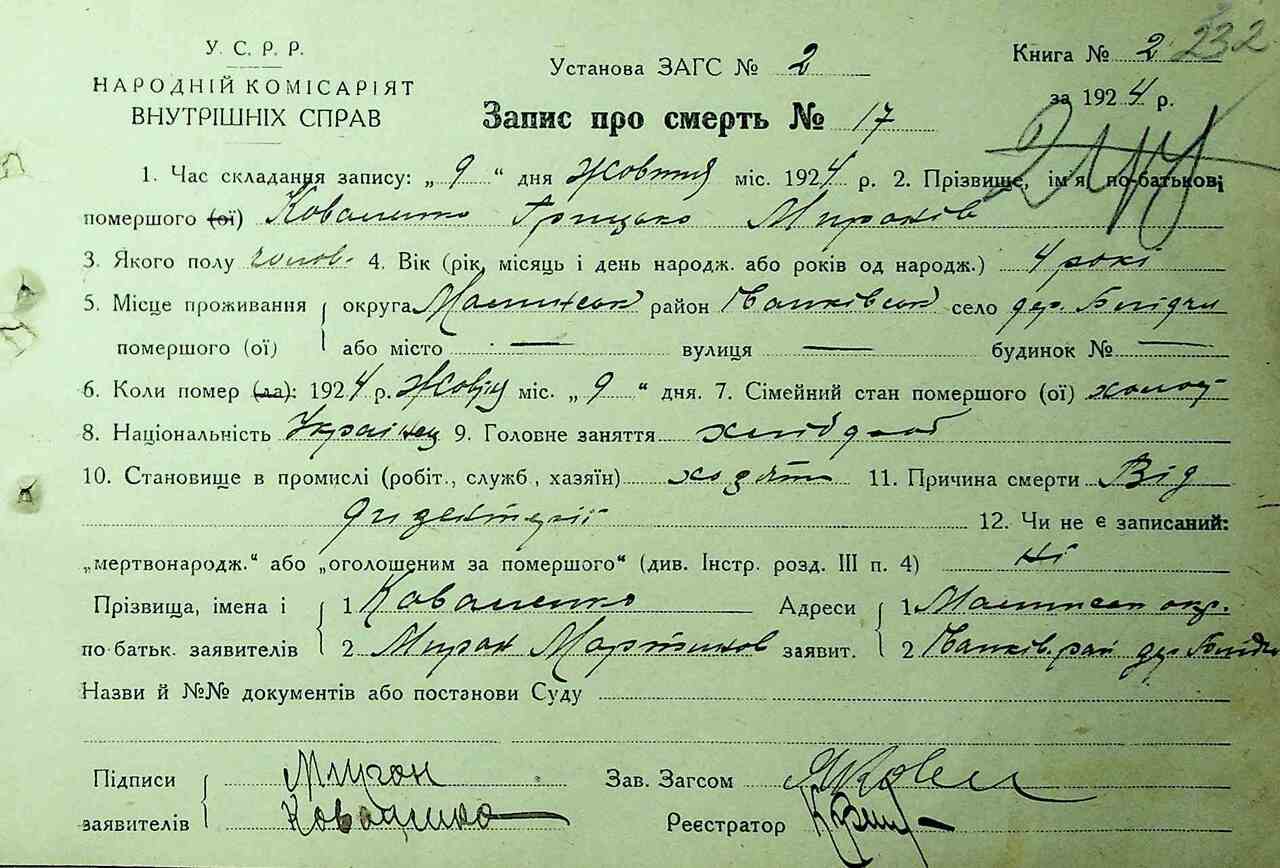 У. С. Р. Р.
НАРОДНІЙ КОМІСАРІЯТ
ВНУТРІШНІХ СПРАВ
Установа ЗАГС № 2
Книга № 2 232
за 1924 р.
Запис про смерть № 17
1. Час складання запису: „ 9 “ дня Жовтня міс. 1924 р. 2. Прізвище, ім'я по-батькові
помершого (ої) Коваленко Грицько Миронів
3. Якого полу чолов. 4. Вік (рік, місяць і день народж. або років од народж.) 4 рокі
5. Місце проживання округа район село дер.
помершого (ої) або місто — вулиця — будинок № —
6. Коли помер (ла): 1924 р. міс. „ 9 “ дня. 7. Сімейний стан помершого (ої) холост
8. Національність Українец 9. Головне заняття хлібороб
10. Становище в промислі (робіт., служб., хазяїн) 11. Причина смерти Від
дизентерії 12. Чи не є записаний:
„мертвонародж.“ або „оголошеним за помершого“ (див. Інстр. розд. III п. 4) ні
Прізвища, імена і 1 Коваленко Адреси 1 окр.
по-батьк. заявителів 2 Мирон Мартинов заявит. 2 рай дер.
Назви й №№ документів або постанови Суду
Підписи Мирон Зав. Загсом
заявителів Коваленко Реєстратор